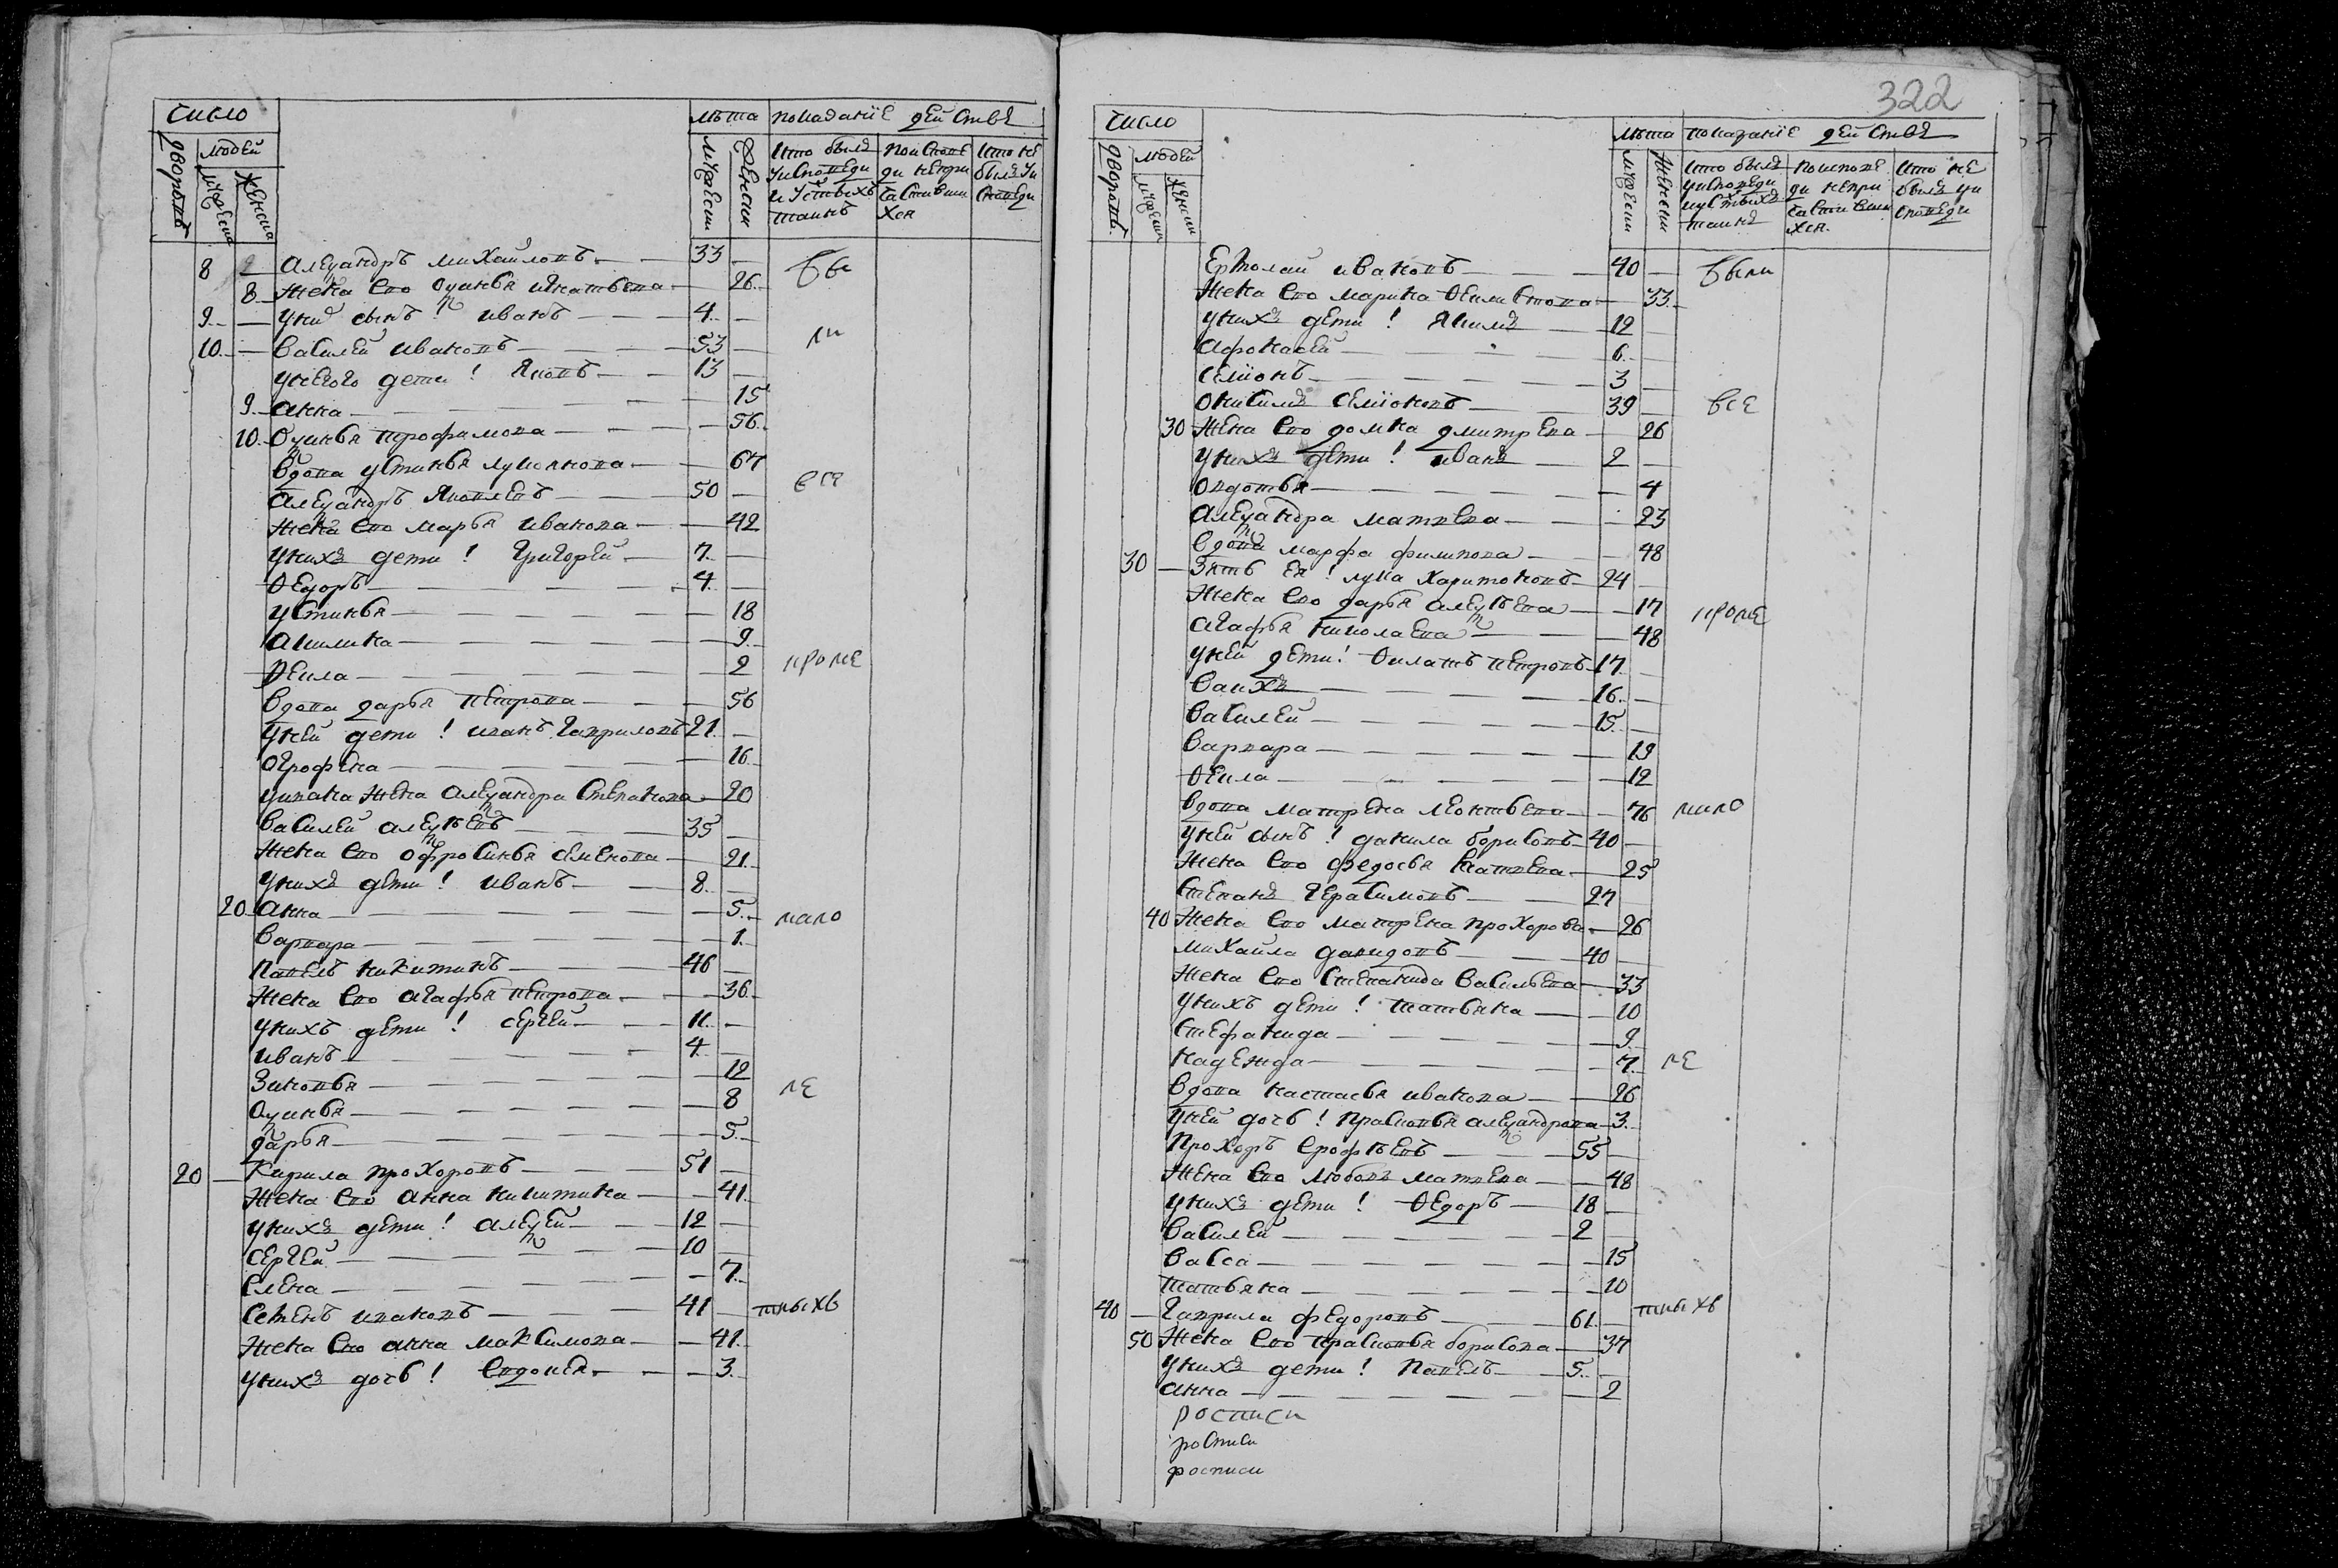 число
лѣта показаніе дѣйствъ
дворовъ
людей
мужеска
женска
мужеск
женски
кто былъ
поиспове
кто не
уисповеди
ди непри
былъ уи
и стыхъ
частивши
споведи
таинъ
хся
8 2 Александръ михайловъ 33
8 жена ево оксинья игнатьева 26
бы
9 у них сынъ иванъ 4
10 василей ивановъ 53
ли
у него дети ! яковъ 13
9 анна 15
10 оксинья трофимова 56
вдова устинья лукоянова 67
все
александръ яковлевъ 50
жена ево марья иванова 42
у нихъ дети ! григорей 7
ѳедоръ 4
устинья 18
акилина 9
ѳекла 2
кроме
вдова дарья петрова 56
у ней дети ! иванъ гаврилов 21
огрофена 16
у ивана жена александра степанова 20
василей алексѣевъ 35
жена ево офросинья семенова 21
у нихъ дети ! иванъ 8
20 анна 5
мало
варвара 1
павелъ никитинъ 46
жена ево агафья петрова 36
у нихъ дети ! сергей 11
иванъ 4
зиновья 12
ле
оксинья 8
дарья 5
20 кирила прохоровъ 51
жена ево анна никитина 41
у нихъ дети ! алексей 12
сергей 10
елена 7
семенъ ивановъ 41
тныхъ
жена ево анна максимова 41
у нихъ дочь ! евдокея 3
322
число
лѣта показаніе дѣйствъ
дворовъ
людей
мужески
женски
мужески
женски
кто былъ
поиспове
кто не
уисповеди
ди непри
былъ уи
и стыхъ
частивши
споведи
таинъ
хся
ермолай ивановъ 40
были
жена ево марина ѳеилистова 33
у нихъ дети ! якимъ 12
афонасей 6
семионъ 3
онисимъ семионовъ 39
все
30 жена ево домна дмитрева 26
у нихъ дети ! иванъ 2
овдотья 4
александра матвева 23
вдова марфа филипова 48
30 зять ея ! лука харитоновъ 24
жена ево дарья алексѣева 17
кроме
агафья николаева 48
у ней дети ! филатъ петровъ 17
16
василей 15
варвара 19
ѳекла 12
вдова матрена леонтьева 76
мало
у ней сынъ ! данила борисовъ 40
жена ево федосья матвева 25
степанъ герасимовъ 27
40 жена ево матрена прохорова 26
михайла давидовъ 40
жена ево степанида васильева 33
у нихъ дети ! татьяна 10
стефанида 9
надежда 7
ле
вдова настасья иванова 26
у ней дочь ! прасковья александрова 3
прохоръ ерофѣевъ 55
жена ево любовь матвева 48
у нихъ дети ! ѳедоръ 18
василей 2
васса 15
татьяна 10
40 гаврила федоровъ 61
тныхъ
50 жена ево прасковья борисова 37
у нихъ дети ! павелъ 5
анна 2
росписи
росписи
росписи